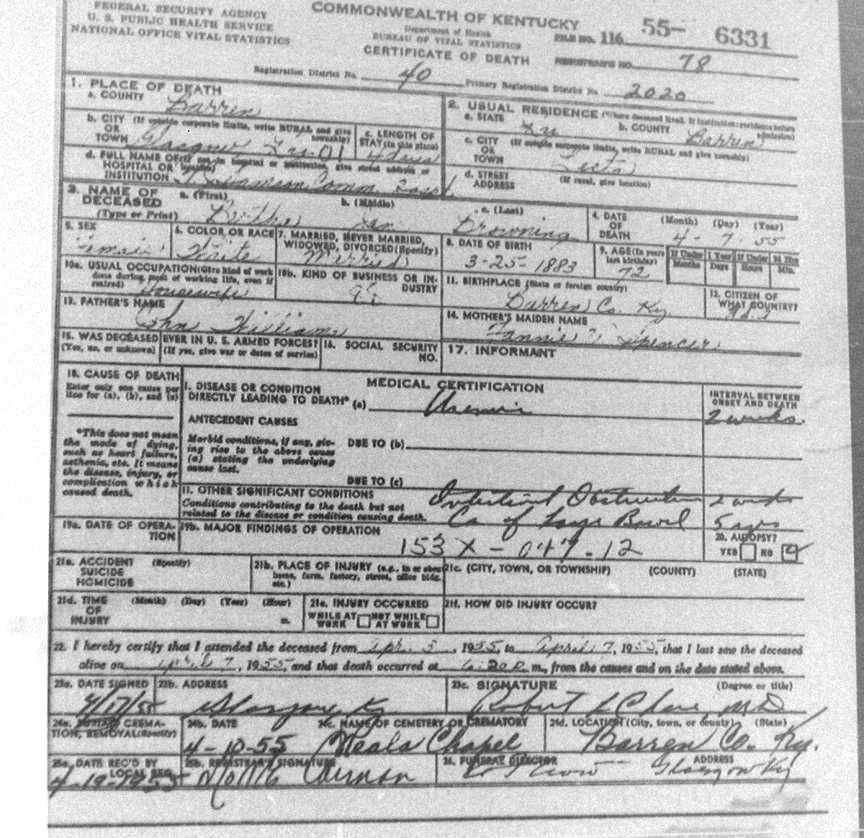 FEDERAL SECURITY AGENCY
U. S. PUBLIC HEALTH SERVICE
NATIONAL OFFICE VITAL STATISTICS
COMMONWEALTH OF KENTUCKY
Department of Health
BUREAU OF VITAL STATISTICS
CERTIFICATE OF DEATH
FILE NO. 116 55- 6331
REGISTRAR'S NO. 78
Registration District No. 40 Primary Registration District No. 2020
1. PLACE OF DEATH
a. COUNTY Barren
2. USUAL RESIDENCE (Where deceased lived. If institution: residence before admission)
a. STATE Ky b. COUNTY Barren
b. CITY (If outside corporate limits, write RURAL and give township)
OR TOWN Glasgow
c. LENGTH OF STAY (in this place) 4 days
c. CITY (If outside corporate limits, write RURAL and give township)
OR TOWN
d. FULL NAME OF (If not in hospital or institution, give street address or
HOSPITAL OR
INSTITUTION Comm. Hosp.
d. STREET ADDRESS (If rural, give location)
3. NAME OF DECEASED (Type or Print)
a. (First) b. (Middle) c. (Last) Browning
4. DATE OF DEATH (Month) (Day) (Year) 4-7-55
5. SEX Female
6. COLOR OR RACE White
7. MARRIED, NEVER MARRIED, WIDOWED, DIVORCED (Specify) Married
8. DATE OF BIRTH 3-25-1883
9. AGE (In years last birthday) 72 If Under 1 Year Months Days If Under 24 Hrs Hours Min.
10a. USUAL OCCUPATION (Give kind of work done during most of working life, even if retired) Housewife
10b. KIND OF BUSINESS OR INDUSTRY
11. BIRTHPLACE (State or foreign country) Barren Co. Ky
12. CITIZEN OF WHAT COUNTRY?
13. FATHER'S NAME John Williams
14. MOTHER'S MAIDEN NAME Fannie Spencer
15. WAS DECEASED EVER IN U. S. ARMED FORCES?
(Yes, no, or unknown) (If yes, give war or dates of service)
16. SOCIAL SECURITY NO.
17. INFORMANT
18. CAUSE OF DEATH
Enter only one cause per line for (a), (b), and (c)
MEDICAL CERTIFICATION
INTERVAL BETWEEN ONSET AND DEATH
I. DISEASE OR CONDITION
DIRECTLY LEADING TO DEATH* (a) Uremia 2 weeks
*This does not mean the mode of dying, such as heart failure, asthenia, etc. It means the disease, injury, or complication which caused death.
ANTECEDENT CAUSES
Morbid conditions, if any, giving rise to the above cause (a) stating the underlying cause last.
DUE TO (b)
DUE TO (c)
11. OTHER SIGNIFICANT CONDITIONS
Conditions contributing to the death but not related to the disease or condition causing death.
Intestinal Obstruction 2 weeks
Ca of Large Bowel 5 yrs
19a. DATE OF OPERATION
19b. MAJOR FINDINGS OF OPERATION
153X - 047. 12
20. AUTOPSY?
YES NO
21a. ACCIDENT SUICIDE HOMICIDE (Specify)
21b. PLACE OF INJURY (e.g., in or about home, farm, factory, street, office bldg. etc.)
21c. (CITY, TOWN, OR TOWNSHIP) (COUNTY) (STATE)
21d. TIME OF INJURY (Month) (Day) (Year) (Hour) m.
21e. INJURY OCCURRED
WHILE AT WORK NOT WHILE AT WORK
21f. HOW DID INJURY OCCUR?
22. I hereby certify that I attended the deceased from Apr. 3, 1955, to April 7, 1955, that I last saw the deceased
alive on April 7, 1955, and that death occurred at 6:20 m., from the causes and on the date stated above.
23a. DATE SIGNED 4/17/55
23b. ADDRESS Glasgow, Ky
23c. SIGNATURE (Degree or title) Robert M.D.
24a. BURIAL CREMATION, REMOVAL (Specify)
24b. DATE 4-10-55
24c. NAME OF CEMETERY OR CREMATORY Neals Chapel
24d. LOCATION (City, town, or county) (State) Barren Co. Ky.
25a. DATE REC'D BY LOCAL REG. 4-19-1955
25b. REGISTRAR'S SIGNATURE
26. FUNERAL DIRECTOR ADDRESS Glasgow Ky